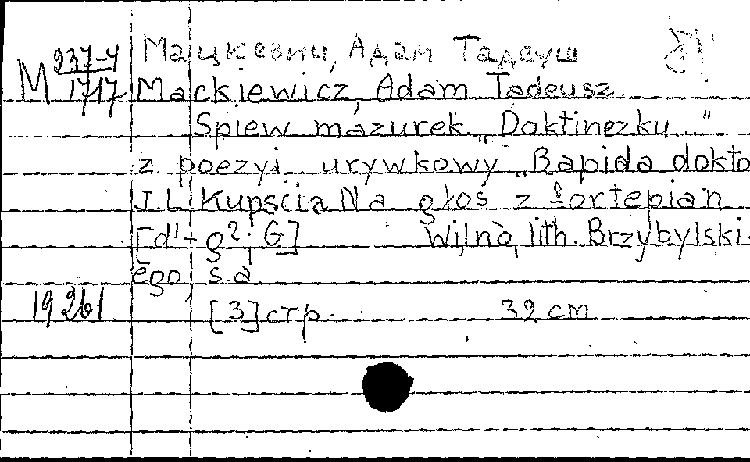 Мацкевич, Адам Тадеуш
M 237-4
1717 Mackiewicz, Adam Tadeusz
Spiew mazurek „Doktinezku..."
z poezyi urywkowy „Bapida dokto
J. L. Kupścia Na głoś z fortepian
[d¹-g²; G] Wilno, lith. Brzybylski-
ego, s.a.
19261 [3] стр. 32 cm